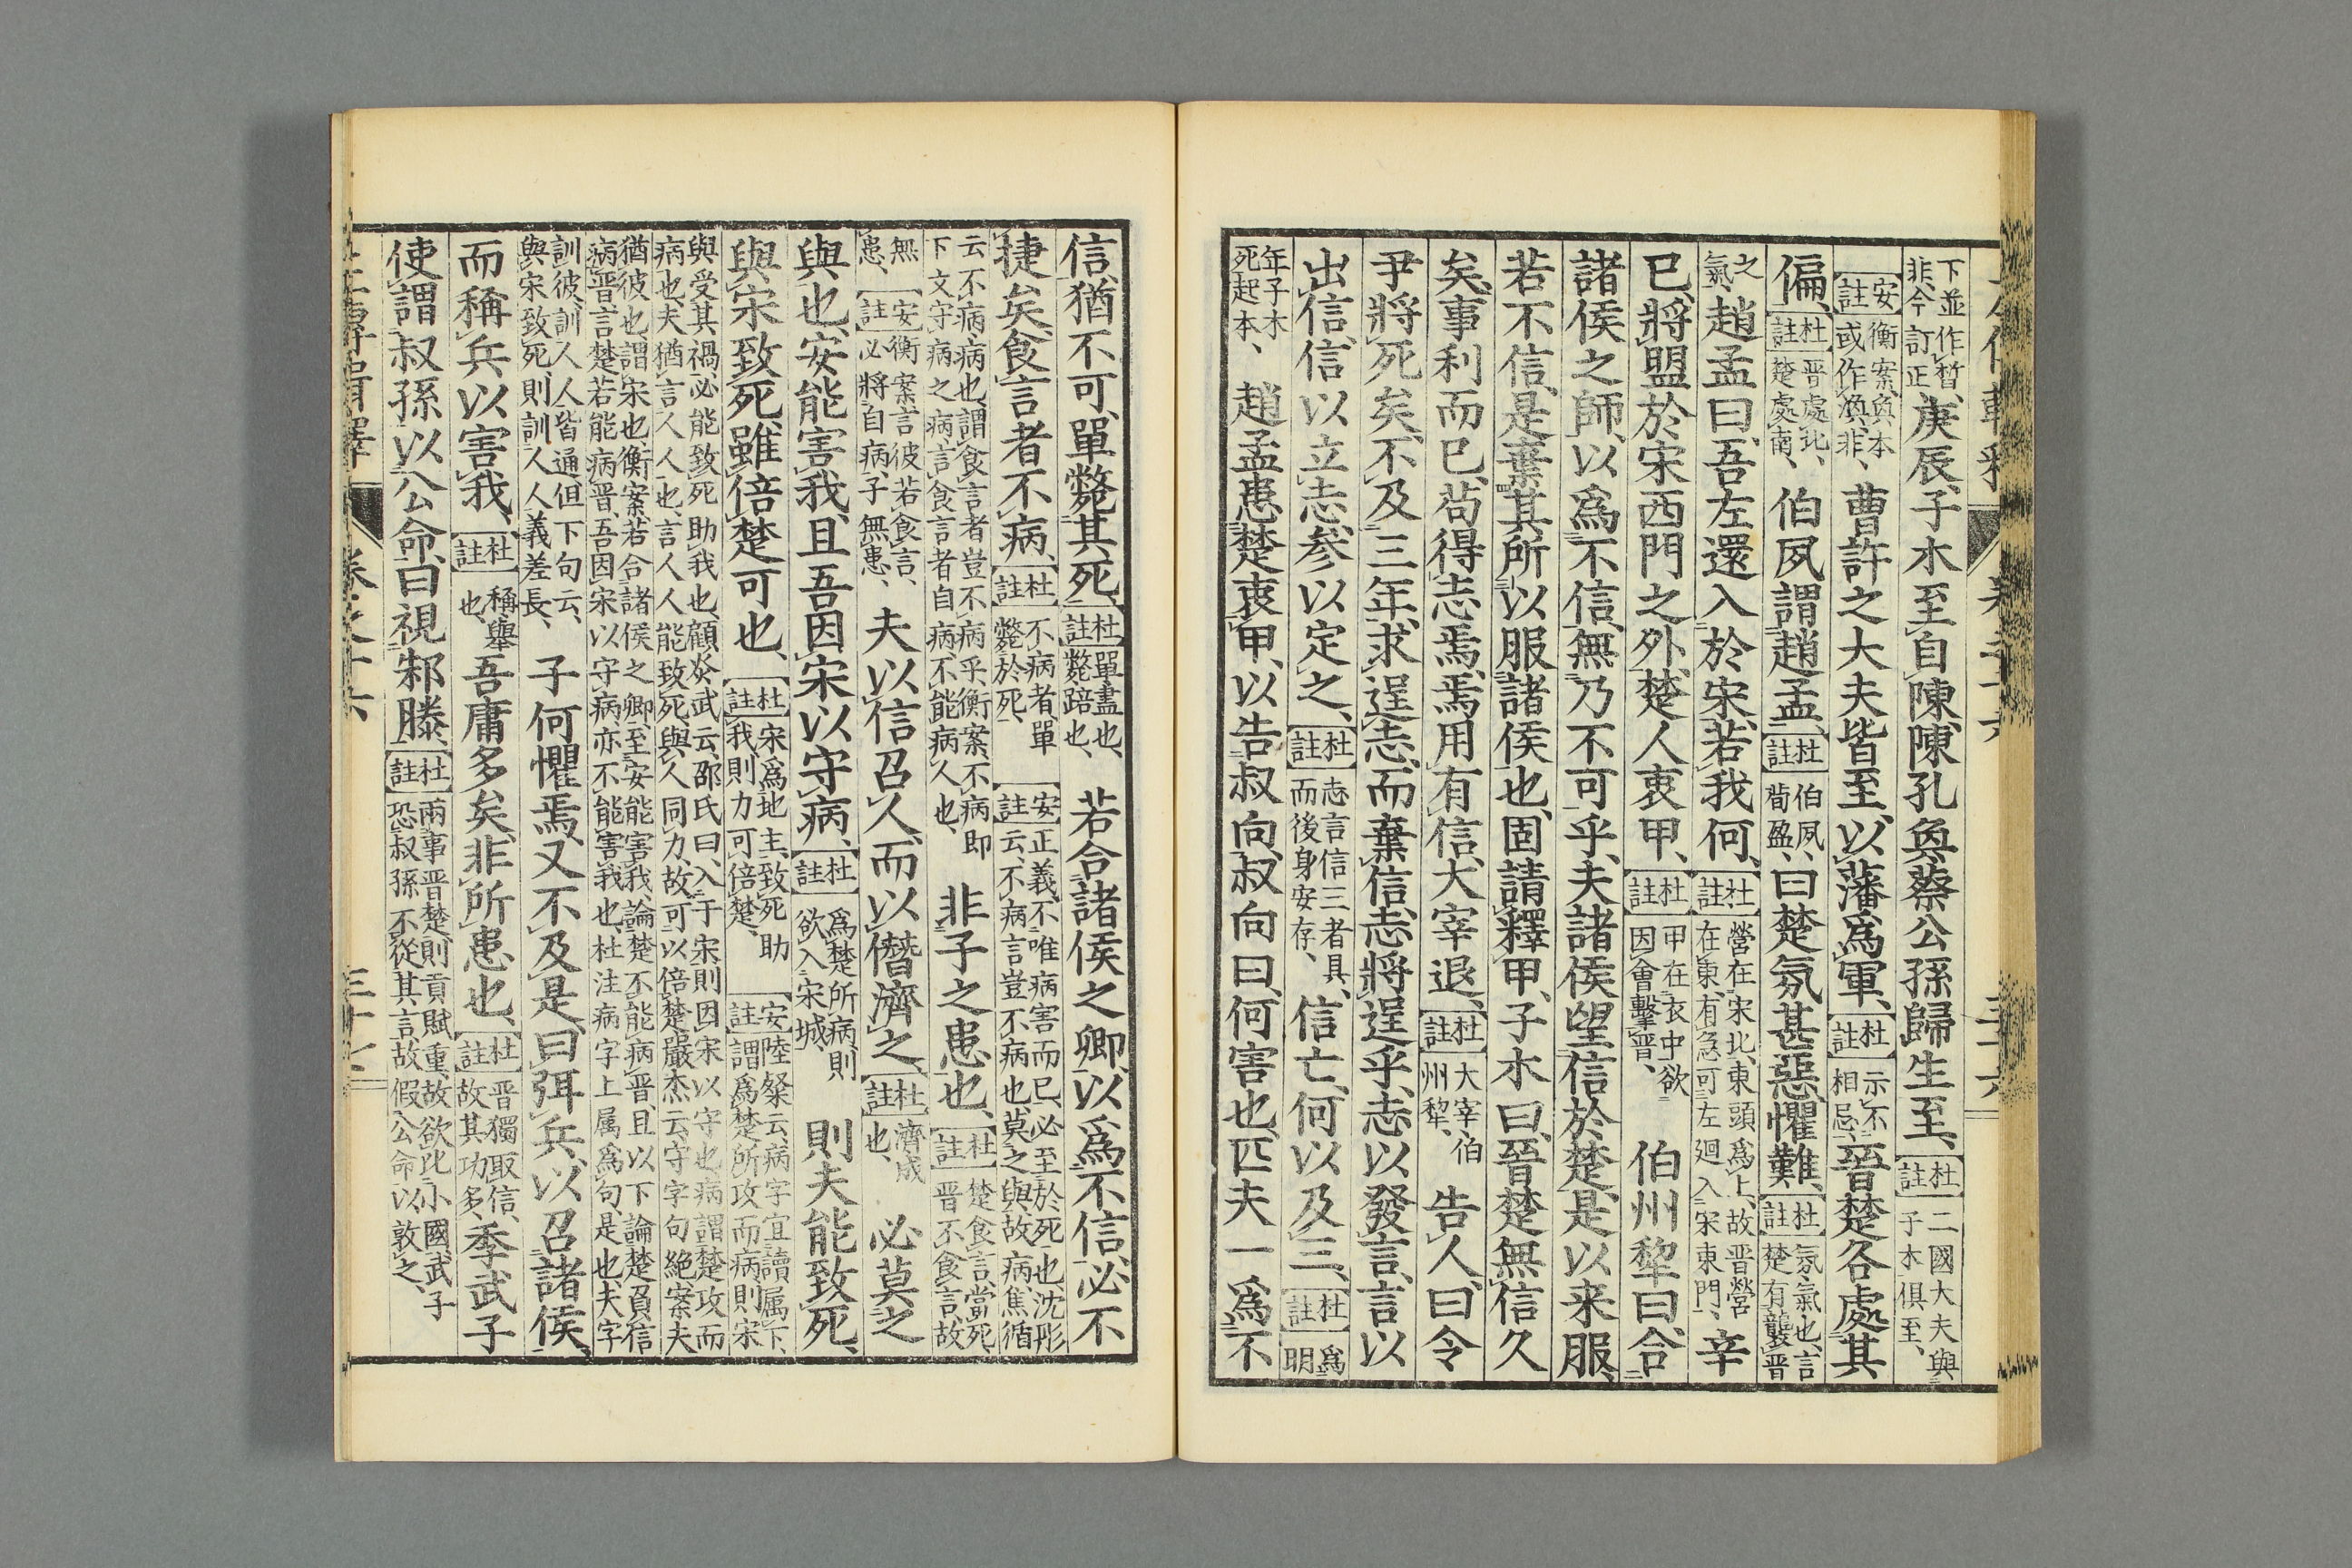 下並作晳、非、今訂正、庚辰、子木至自陳、陳孔奐、蔡公孫歸生至、杜註二國大夫與子木俱至、
安註衡案、奐本或作渙、非、曹許之大夫皆至、以藩爲軍、杜註示不相忌、晉楚各處其
偏、杜註晉處北、楚處南、伯夙謂趙孟、杜註伯夙、荀盈、曰楚氛甚惡、懼難、杜註氛、氣也、言楚有襲晉
之氣、趙孟曰、吾左還入於宋、若我何、杜註營在宋北、東頭爲上、故晉營在東、有急可左廻入宋東門、辛
巳、將盟於宋西門之外、楚人衷甲、杜註甲在衣中、欲因會擊晉、伯州犂曰、合
諸侯之師、以爲不信、無乃不可乎、夫諸侯望信於楚、是以来服、
若不信、是棄其所以服諸侯也、固請釋甲、子木曰、晉楚無信久
矣、事利而已、苟得志焉、焉用有信、大宰退、杜註大宰、伯州犂、告人曰、令
尹將死矣、不及三年、求逞志、而棄信、志將逞乎、志以發言、言以
出信、信以立志、參以定之、杜註志言信三者具、而後身安存、信亡、何以及三、杜註爲明
年子木死起本、趙孟患楚衷甲、以告叔向、叔向曰、何害也、匹夫一爲不
信、猶不可、單斃其死、杜註單、盡也、斃、踣也、若合諸侯之卿、以爲不信、必不
捷矣、食言者不病、杜註不病者、單斃於死、安註正義、不唯病害而已、必至於死也、沈彤云、不病、言豈不病也、莫之與、故病、焦循
云、不病、病也、謂食言者豈不病乎、衡案、不病、即下文守病之病、言食言者自病、不能病人也、非子之患也、杜註楚食言、當死、晉不食言、故
無患、安註衡案、言彼若食言、必將自病、子無患、夫以信召人、而以僭濟之、杜註濟、成也、必莫之
與也、安能害我、且吾因宋以守病、杜註爲楚所病、則欲入宋城、則夫能致死、
與宋致死、雖倍楚可也、杜註宋爲地主、致死助我、則力可倍楚、安註陸粲云、病字宜讀属下、謂爲楚所攻而病、則宋
與受其禍、必能致死助我也、顧炎武云、邵氏曰、入于宋、則因宋以守也、病謂楚攻而病也、夫猶言人人也、言人人能致死、與人同力、故可以倍楚、嚴杰云、守字句絶、案夫
猶彼也、謂宋也、衡案、若合諸侯之卿、至安能害我、論楚不能病晉、且以下論楚負信病晉、言楚若能病晉、吾因宋以守病、亦不能害我也、杜注病字上属爲句、是也、夫字
訓彼、訓人人皆通、但下句云、與宋致死、則訓人人義差長、子何懼焉、又不及是、曰弭兵、以召諸侯、
而稱兵以害我、杜註稱、舉也、吾庸多矣、非所患也、杜註晉獨取信、故其功多、季武子
使謂叔孫以公命、曰視邾滕、杜註兩事晉楚、則貢賦重、故欲比小國、武子恐叔孫不從其言、故假公命以敦之、